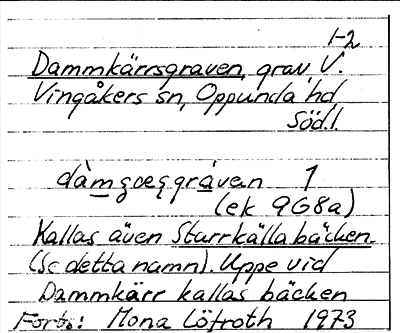 1-2
Dammkärrsgraven, grav, V.
Vingåkers sn, Oppunda hd
Söd.l.
1
(ek 9G8a)
Kallas även Starrkällabäcken.
(Se detta namn). Uppe vid
Dammkärr kallas bäcken
Forts: Mona Löfroth 1973